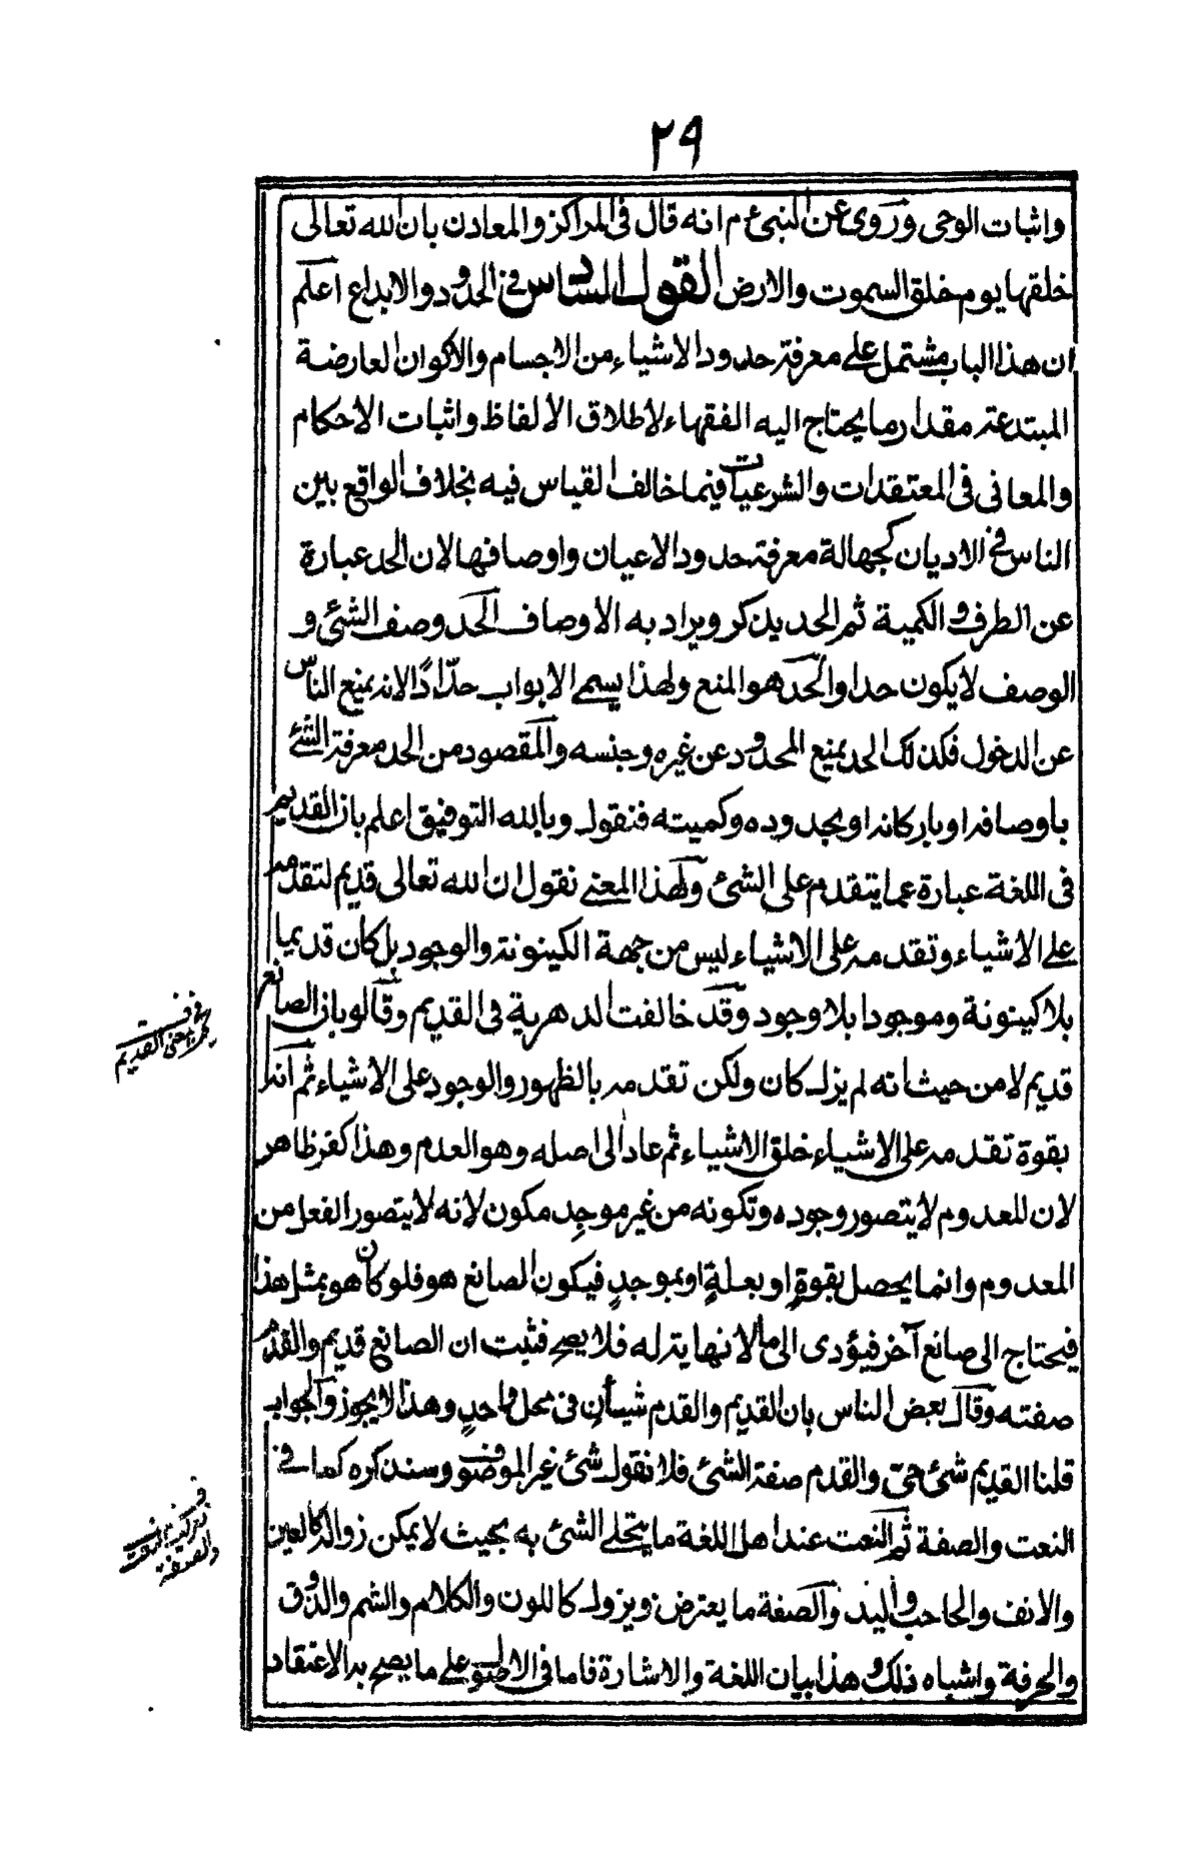 ٢٩
واثبات الوحى وروى عن النبى ء م انه قال فى المراكز والمعادن بان الله تعالى
خلقها يوم خلق السموت والارض القول السادس فى الحدود والابداع اعلم
ان هذا الباب مشتمل على معرفة حدود الاشياء من الاجسام والاكوان العارضة
المبتدعة مقدار ما يحتاج اليه الفقهاء لأطلاق الألفاظ واثبات الأحكام
والمعانى فى المعتقدات والشرعيات فيما خالف القياس فيه بخلاف الواقع بين
الناس فى الاديان كجهالة معرفة حدود الاعيان واوصافها لان الحد عبارة
عن الطرف والكمية ثم الحد يذكر ويراد به الأوصاف الحد وصف الشئ و
الوصف لا يكون حدا والحد هو المنع ولهذا يسمى الابواب حدّادًا لانه يمنع الناس
عن الدخول فكذلك الحد يمنع المحدود عن غيره وجنسه والمقصود من الحد معرفة الشئ
باوصافه او باركانه او بحدوده وكميته فنقول وبالله التوفيق اعلم بان القديم
فى اللغة عبارة عما يتقدم على الشئ ولهذا المعنى نقول ان الله تعالى قديم لتقدمه
على الاشياء وتقدمه على الاشياء ليس من جهة الكينونة والوجود بل كان قديما
بلا كينونة وموجودا بلا وجود وقد خالفت الدهرية فى القديم وقالو بان الصانع
قديم لا من حيث انه لم يزل كان ولكن تقدمه بالظهور والوجود على الاشياء ثم انه
بقوة تقدمه على الاشياء خلق الاشياء ثم عاد الى اصله وهو العدم وهذا كفر ظاهر
لان للعدوم لا يتصور وجوده وتكونه من غير موجد مكون لانه لا يتصور الفعل من
المعدوم وانما يحصل بقوةٍ او بعلةٍ او بموجدٍ فيكون الصانع هو فلو كان هو بمثل هذا
فيحتاج الى صانع آخر فيؤدى الى ما لا نهاية له فلا يصح فثبت ان الصانع قديم والقدم
صفته وقال بعض الناس بان القديم والقدم شيأن فى محل واحدٍ وهذا لا يجوز والجواب
قلنا القديم شئ حىّ والقدم صفة الشئ فلا نقول شئ غير الموصوف وسنذكره كما فى
النعت والصفة ثم النعت عند اهل اللغة ما يتحلى الشئ به بحيث لا يمكن زواله كالعين
والانف والحاجب واليد والصفة ما يعترض ويزول كاللون والكلام والشم والذوق
والحرفة واشباه ذلك وهذا بيان اللغة والاشارة فاما فى الاطلاق على ما يصح به الاعتقاد
القديم
والصفة